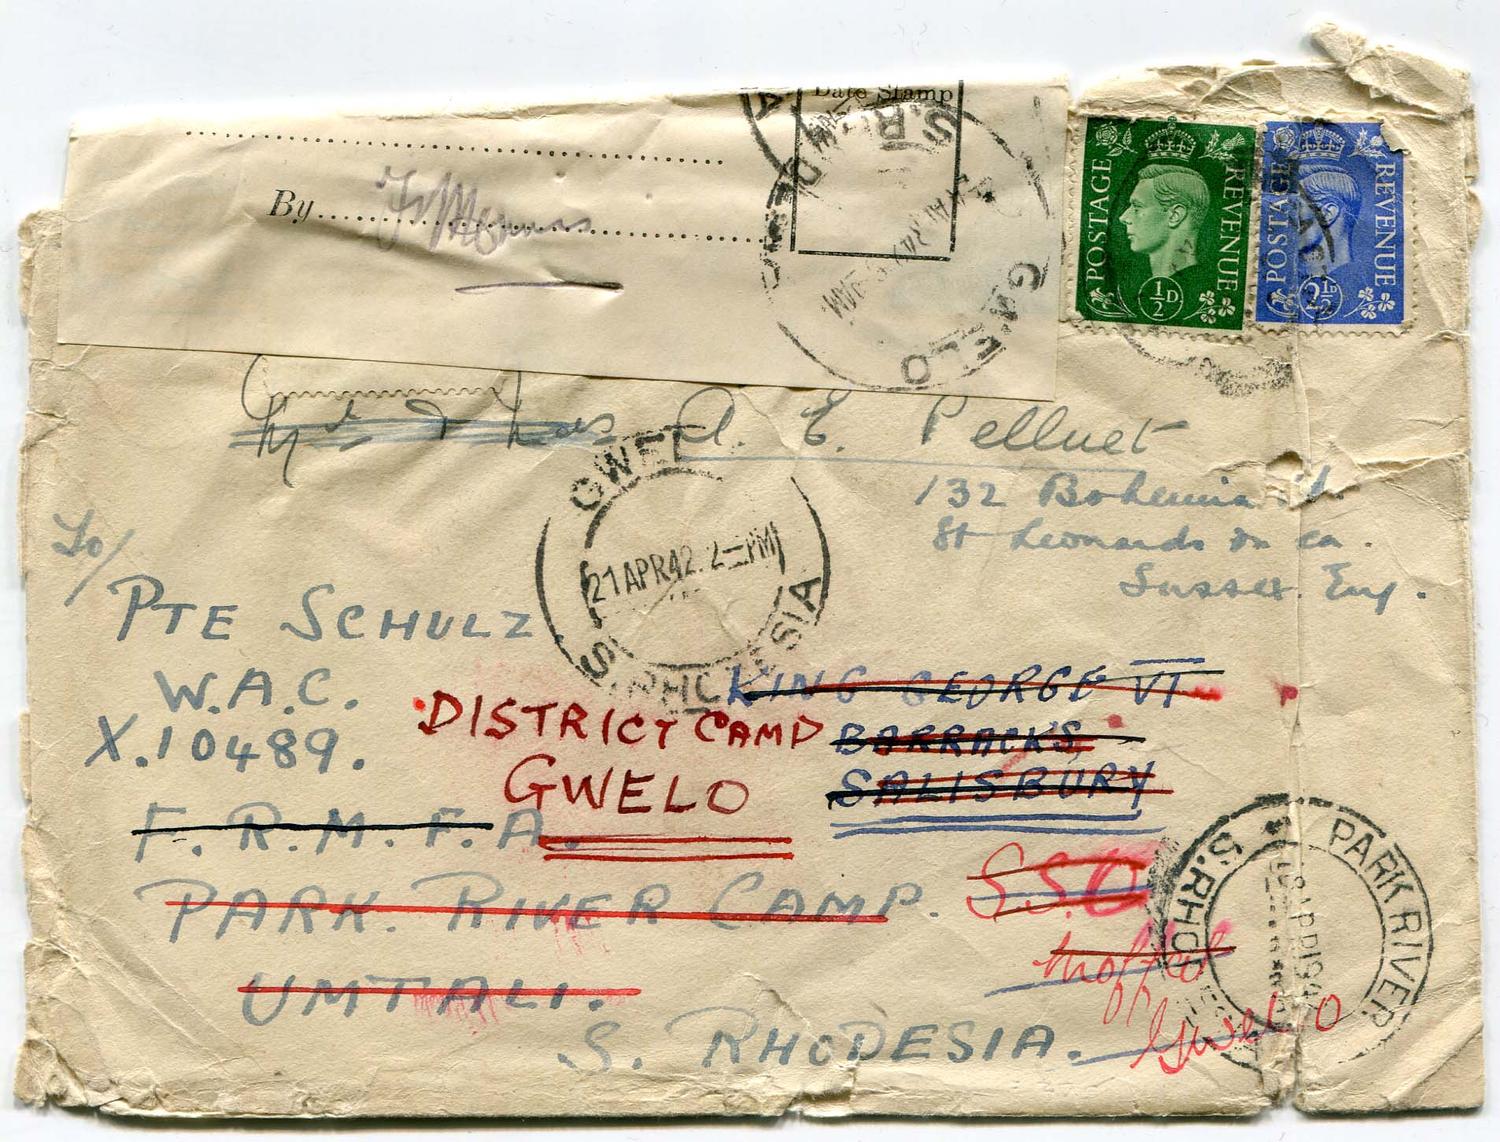 Date Stamp
By
GWELO
S.RH
POSTAGE REVENUE
½D
POSTAGE REVENUE
2½D
A. E. Pelluet
132 Bohemia Rd.
St Leonards on Sea.
Sussex. Eng.
GWEL
21 APR 42. 2 PM
S. RHODESIA
To/
PTE SCHULZ.
W.A.C.
X.10489.
F.R.M.F.A.
PARK RIVER CAMP.
UMTALI.
S. RHODESIA.
KING GEORGE VI
BARRACKS
SALISBURY
DISTRICT CAMP
GWELO
S.S.O
Moffat
Gwelo
PARK RIVER
S.RHODESIA